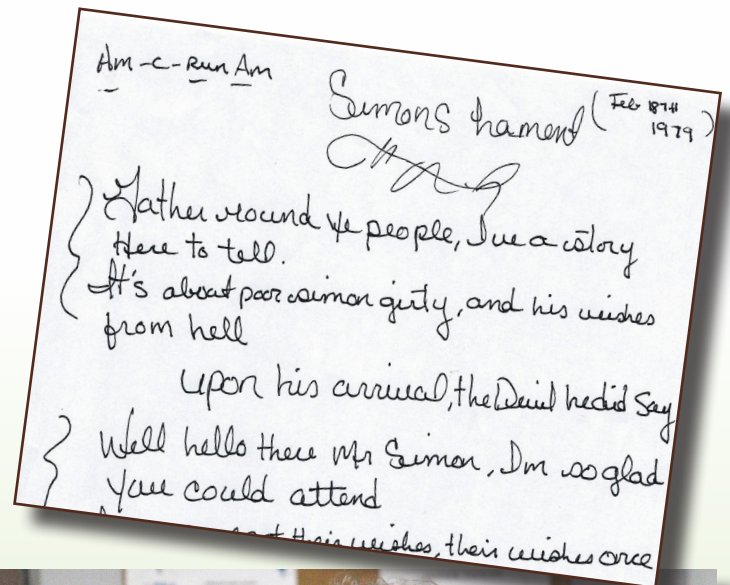 Am-C-Run Am
Simons Lament (Feb 18TH
1979)
Gather round ye people, I've a story
Here to tell.
It's about poor simon girty, and his wishes
from hell
upon his arrival, the Devil he did Say
Well hello there Mr Simon, Im so glad
you could attend
their wishes, their wishes once